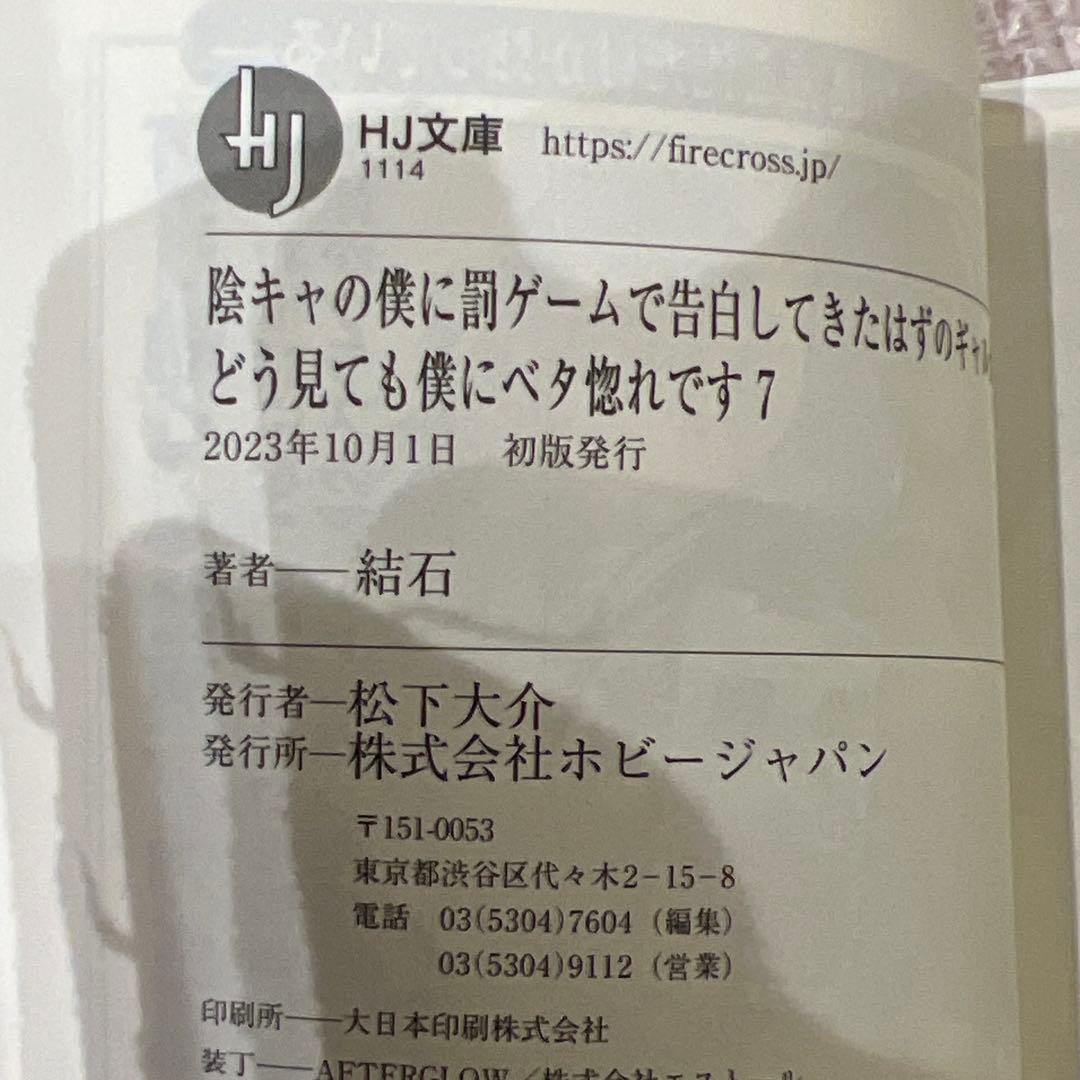 HJ
HJ文庫 https://firecross.jp/
1114
陰キャの僕に罰ゲームで告白してきたはずのギャル
どう見ても僕にベタ惚れです 7
2023年10月1日 初版発行
著者――結石
発行者―松下大介
発行所―株式会社ホビージャパン
〒151-0053
東京都渋谷区代々木2-15-8
電話 03(5304)7604（編集）
03(5304)9112（営業）
印刷所――大日本印刷株式会社
装丁――AFTERGLOW／株式会社エストール